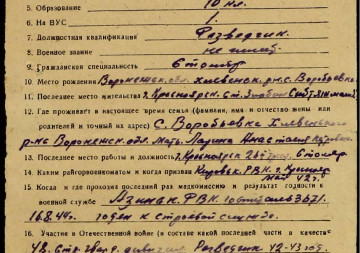 5. Образование 10 кл.
6. На ВУС 1.
7. Должностная квалификация Разведчик
8. Военное звание не имеет
9. Гражданская специальность Столяр
10. Место рождения Воронежск. обл. Хлевенск. р-н с. Воробьевка
11. Последнее место жительства г. Красноярск. Ст.
12. Где проживает в настоящее время семья (фамилия, имя и отчество жены или
родителей и точный их адрес) С. Воробьевка Хлевенского
р-на Воронежск. обл. мать Ларина Анастасия
13. Последнее место работы и должность г. Красноярск Столяр.
14. Каким райгорвоенкоматом и когда призван Кировск. Р.В.К. г. Краснояр.
май 42 г.
15. Когда и где проходил последний раз медкомиссию и результат годности к
военной службе Р.В.К. госпиталь 3621.
16.8.44 г. годен к строевой службе.
16. Участие в Отечественной войне (в составе какой последней части в качестве
48. Стр. гвард. дивизия Разведчик 42-43 год.